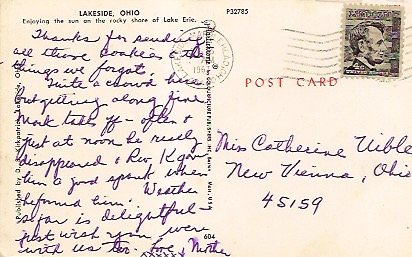 LAKESIDE, OHIO
Enjoying the sun on the rocky shore of Lake Erie.
P32785
POST CARD
Thanks for sending
all those books & the
things we forgot.
Quite a crowd here
but getting along fine
Mark takes off - often &
just at noon he really
disappeared & Rev. K gave
him a good spank when
he found him. Weather
again is delightful -
just wish you were
with us too. Love, Mother
Miss Catherine Uible
New Vienna, Ohio
45159
604